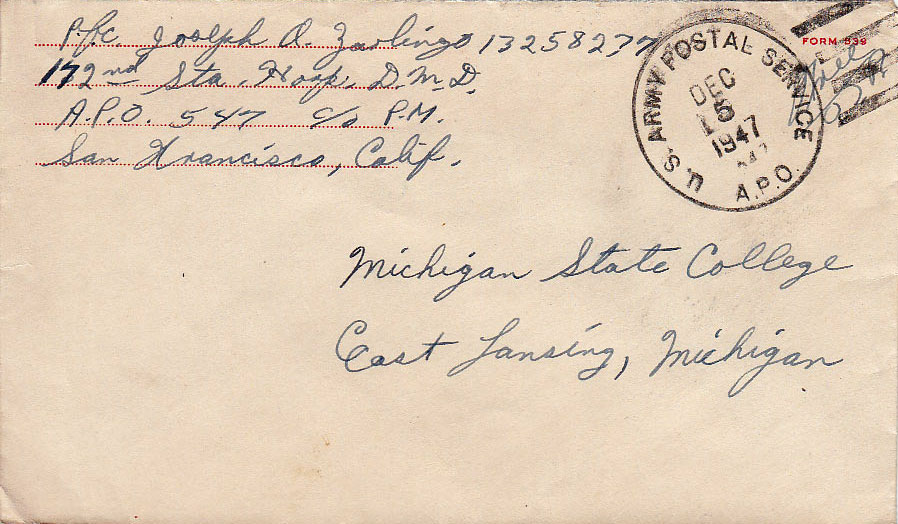 Pfc. Joseph A. Zarlingo 13258237
172nd Sta. Hosp. D.M.D.
A.P.O. 547 c/o P.M.
San Francisco, Calif.
U.S. ARMY POSTAL SERVICE
A.P.O.
DEC
15
1947
547
FORM 539
Free
Michigan State College
East Lansing, Michigan